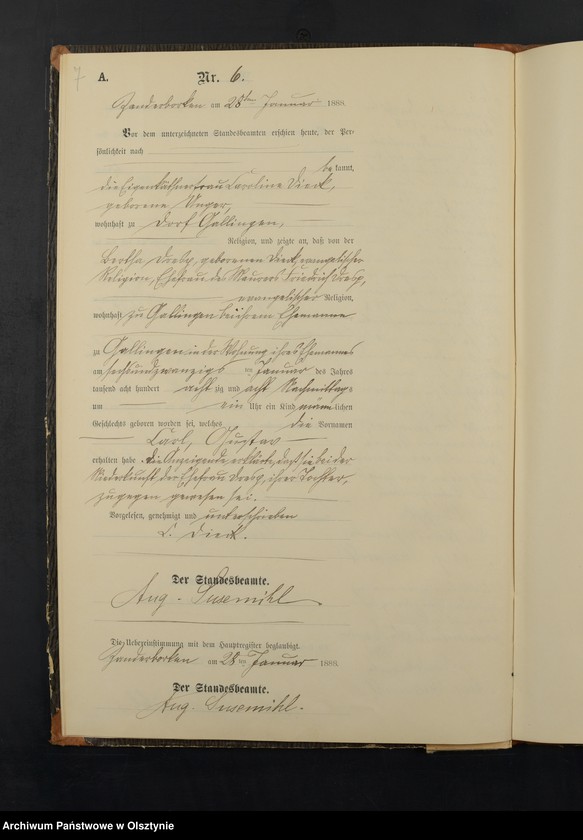 7
A. Nr. 6.
Zanderborken am 28ten Januar 1888.
Vor dem unterzeichneten Standesbeamten erschien heute, der Per-
sönlichkeit nach
bekannt,
die Eigenkäthnerfrau Caroline Dieck,
geborene Unger,
wohnhaft zu Dorf Gallingen,
Religion, und zeigte an, daß von der
Bertha Dresp, geborenen Dieck, evangelischer
Religion, Ehefrau des Maurers Friedrich Dresp,
evangelischer Religion,
wohnhaft zu Gallingen bei ihrem Ehemanne
zu Gallingen in der Wohnung ihres Ehemannes
am sechsundzwanzigsten Januar des Jahres
tausend acht hundert achtzig und acht Nachmittags
um ein Uhr ein Kind männlichen
Geschlechts geboren worden sei, welches die Vornamen
Carl, Gustav
erhalten habe. Die Anzeigende erklärte, daß sie bei der
Niederkunft der Ehefrau Dresp, ihrer Tochter,
zugegen gewesen sei.
Vorgelesen, genehmigt und unterschrieben
C. Dieck.
Der Standesbeamte.
Aug. Susemihl
Die Uebereinstimmung mit dem Hauptregister beglaubigt.
Zanderborken am 28ten Januar 1888.
Der Standesbeamte.
Aug. Susemihl.
Archiwum Państwowe w Olsztynie